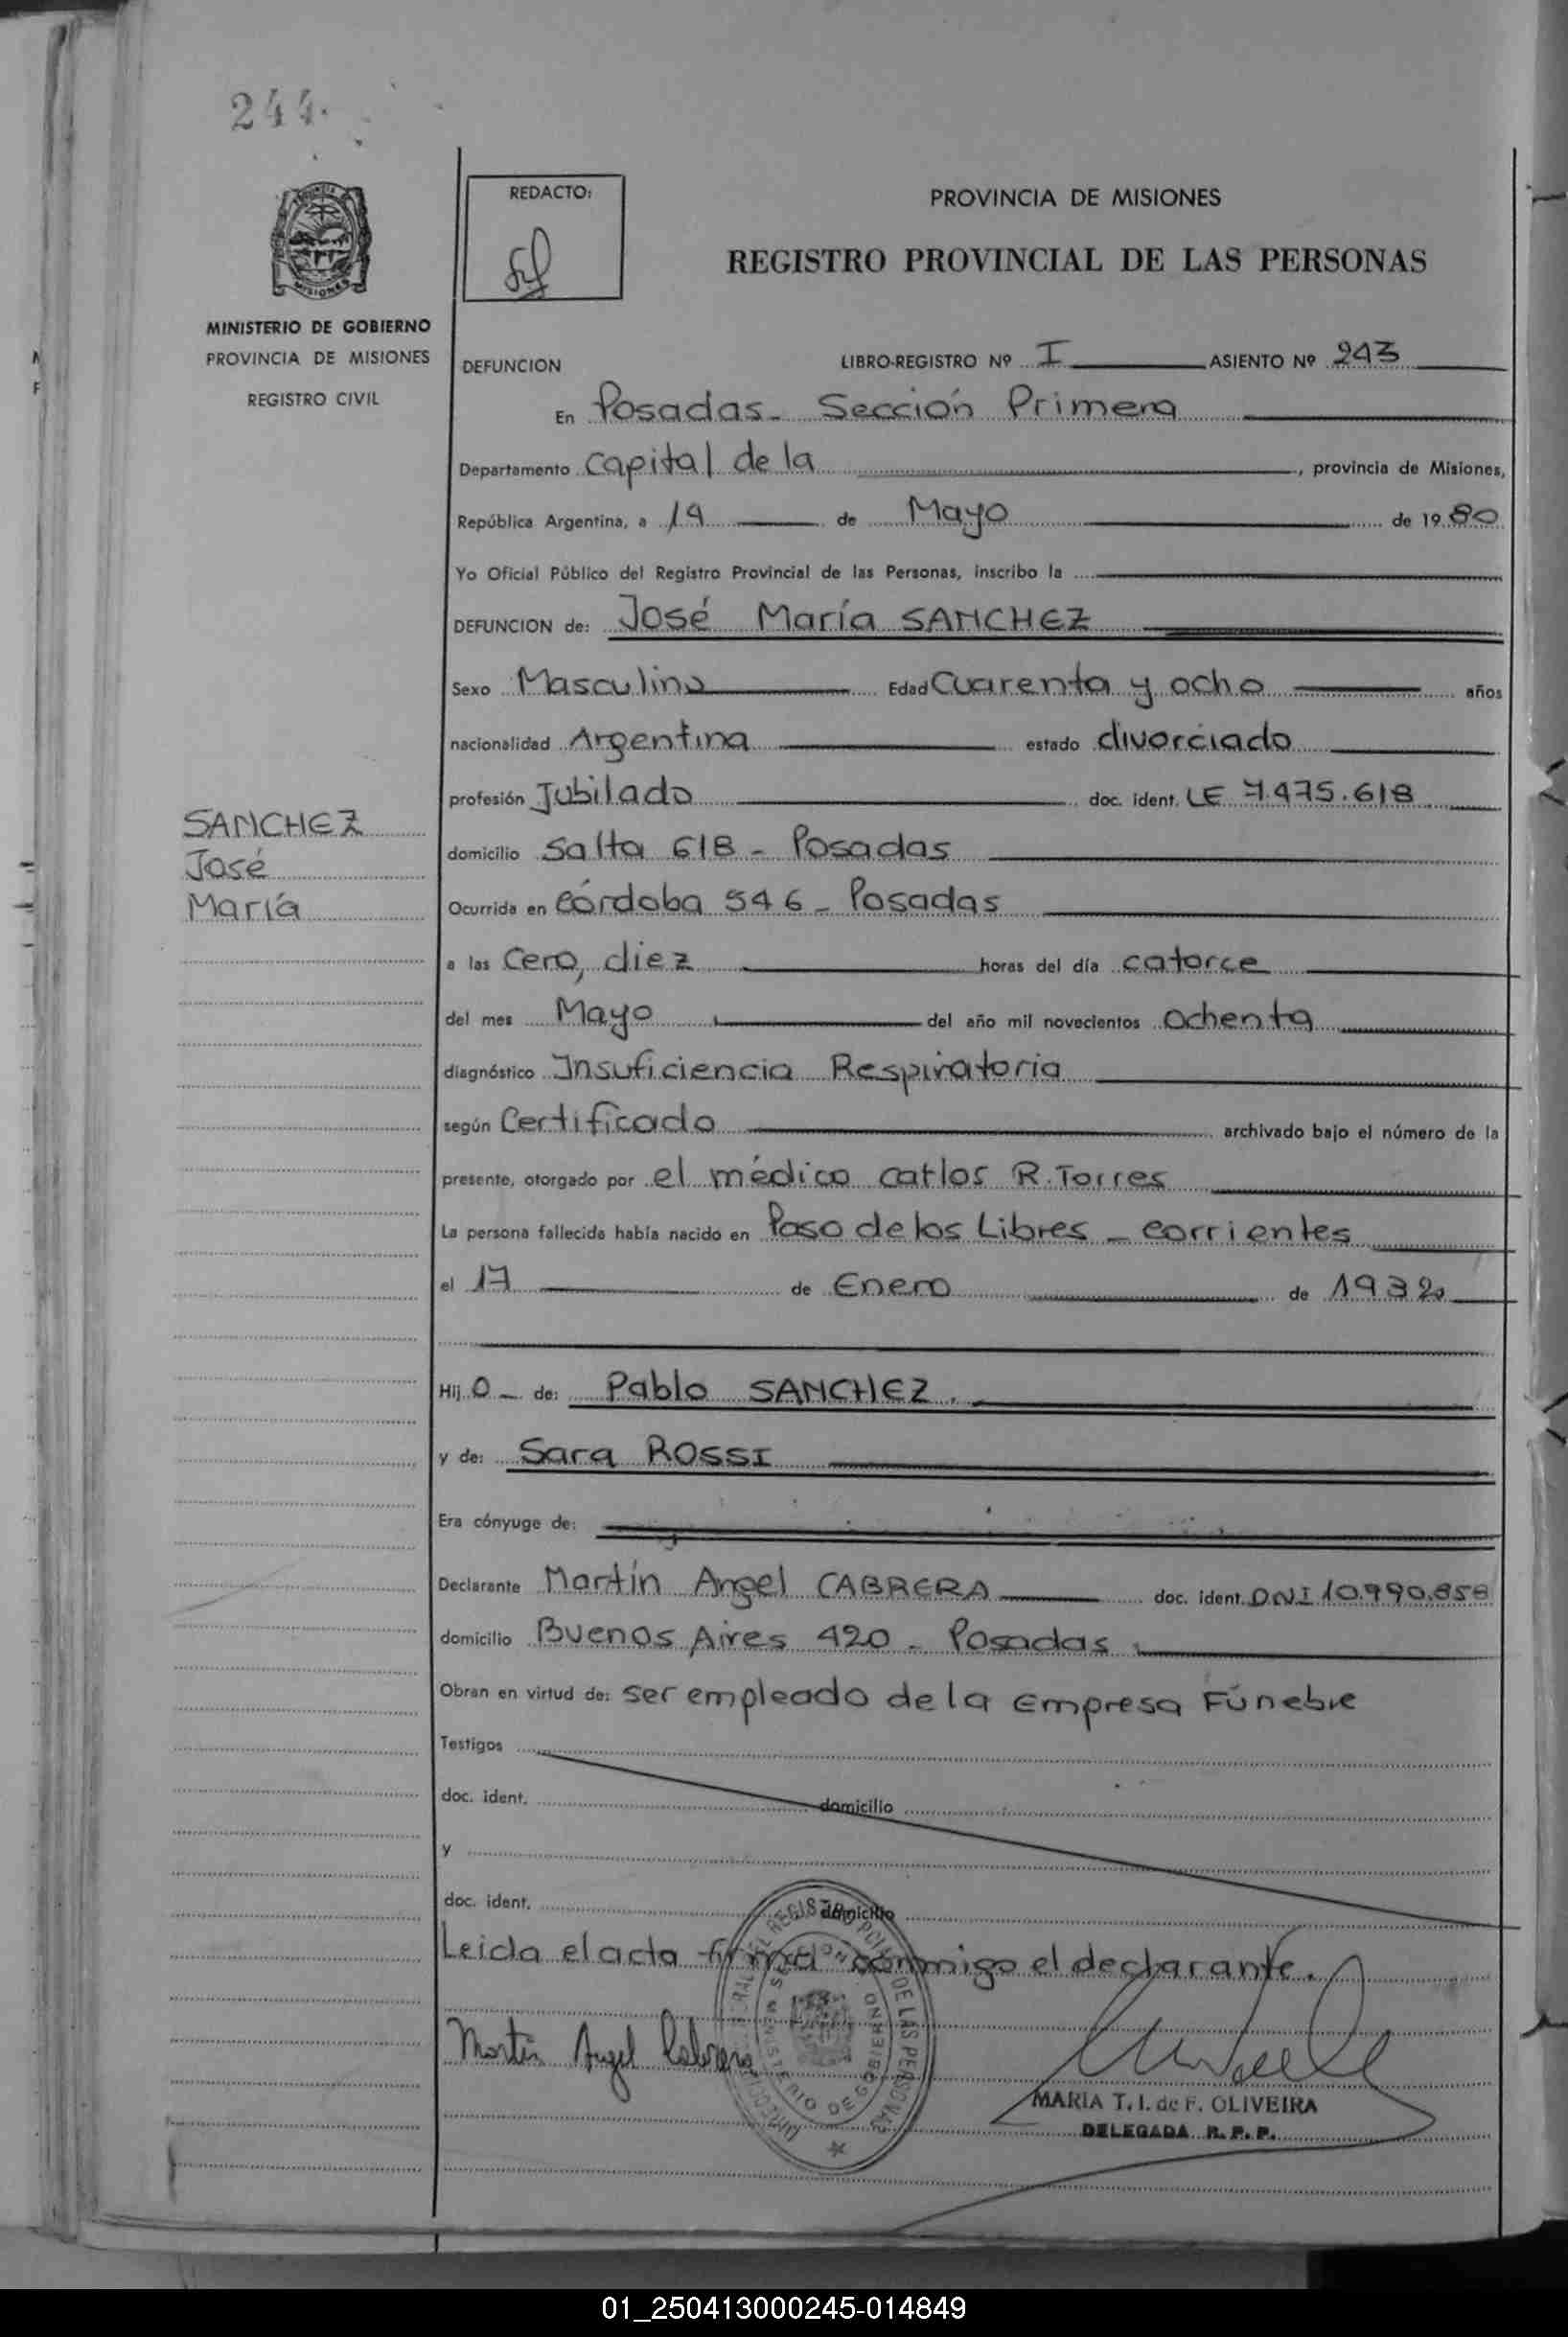 244.
REDACTO:
PROVINCIA DE MISIONES
REGISTRO PROVINCIAL DE LAS PERSONAS
MISIONES
MINISTERIO DE GOBIERNO
PROVINCIA DE MISIONES
REGISTRO CIVIL
DEFUNCION LIBRO-REGISTRO Nº I ASIENTO Nº 243
En Posadas - Sección Primera
Departamento Capital de la , provincia de Misiones,
República Argentina, a 14 de Mayo de 1980
Yo Oficial Público del Registro Provincial de las Personas, inscribo la
DEFUNCION de: José María SANCHEZ
Sexo Masculino Edad Cuarenta y ocho años
nacionalidad Argentina estado divorciado
profesión Jubilado doc. ident. LE 7.475.618
SANCHEZ
José
María
domicilio Salta 618 - Posadas
Ocurrida en Córdoba 546 - Posadas
a las Cero, diez horas del día catorce
del mes Mayo del año mil novecientos ochenta
diagnóstico Insuficiencia Respiratoria
según Certificado archivado bajo el número de la
presente, otorgado por el médico Carlos R. Torres
La persona fallecida había nacido en Paso de los Libres - Corrientes
el 17 de Enero de 1932
Hij o - de: Pablo SANCHEZ.
y de: Sara ROSSI
Era cónyuge de:
Declarante Martín Angel CABRERA doc. ident. DNI 10.990.858
domicilio Buenos Aires 420 - Posadas
Obran en virtud de: ser empleado de la Empresa Fúnebre
Testigos
doc. ident. domicilio
y
doc. ident. domicilio
Leida el acta firma conmigo el declarante.
Martín Angel Cabrera
MINISTERIO DE GOBIERNO
MARIA T. I. de F. OLIVEIRA
DELEGADA R. P. P.
01_250413000245-014849